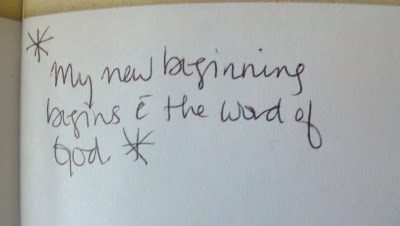 * My new beginning
begins c̄ the word of
God. *